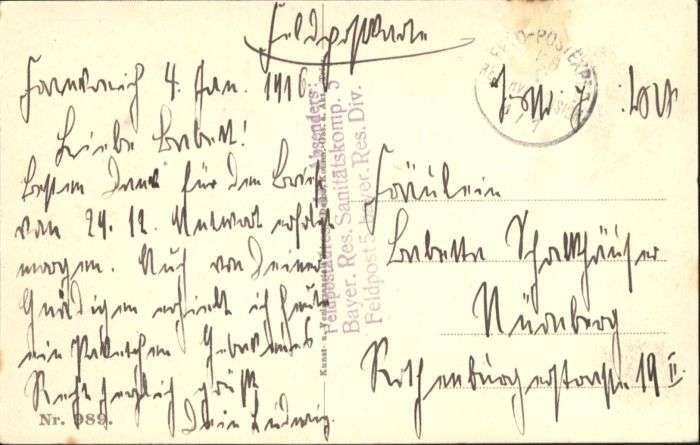 Feldpostkarte
Frankreich 4. Jan. 1916
Liebe Babett!
Besten Dank für den Brief
von 24. 12. Antwort erfolgt
morgen. Auch von Deiner
Gnädigen erhielt ich heute
ein Paketchen Gebackenes
Recht herzlich grüßt
Dein Ludwig.
Nr. 989.
Absenders:
Bayer. Res. Sanitätskomp. 5
Feldpost 5. bayer. Res. Div.
Fräulein
Babette Schalkhäußer
Nürnberg
Rothenburgerstrasse 19 II.